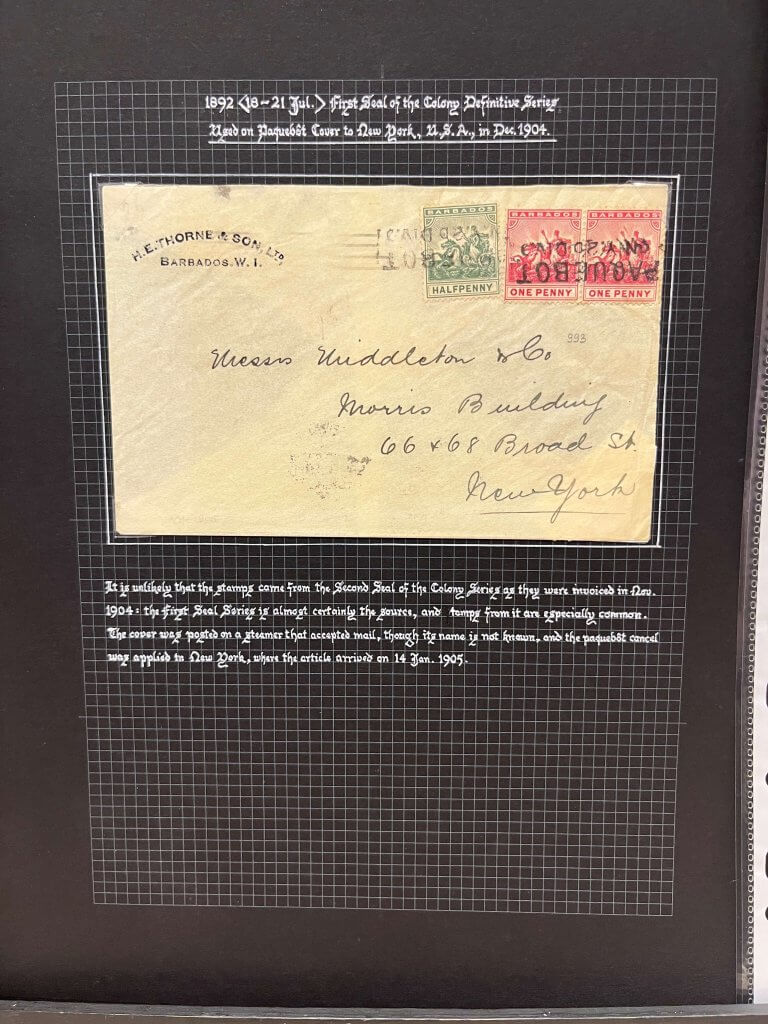 1892 (18-21 Jul.) First Seal of the Colony Definitive Series
Used on Paquebôt Cover to New York, U.S.A., in Dec. 1904.
H.E. THORNE & SON, LTD
BARBADOS. W. I.
BARBADOS
HALFPENNY
BARBADOS
ONE PENNY
BARBADOS
ONE PENNY
PAQUEBOT
PAQUEBOT
993
Messrs Middleton & Co
Morris Building
66 & 68 Broad St.
New York
It is unlikely that the stamps came from the Second Seal of the Colony Series as they were invoiced in Nov.
1904: the First Seal Series is almost certainly the source, and tamps from it are especially common.
The cover was posted on a steamer that accepted mail, though its name is not known, and the paquebôt cancel
was applied in New York, where the article arrived on 14 Jan. 1905.